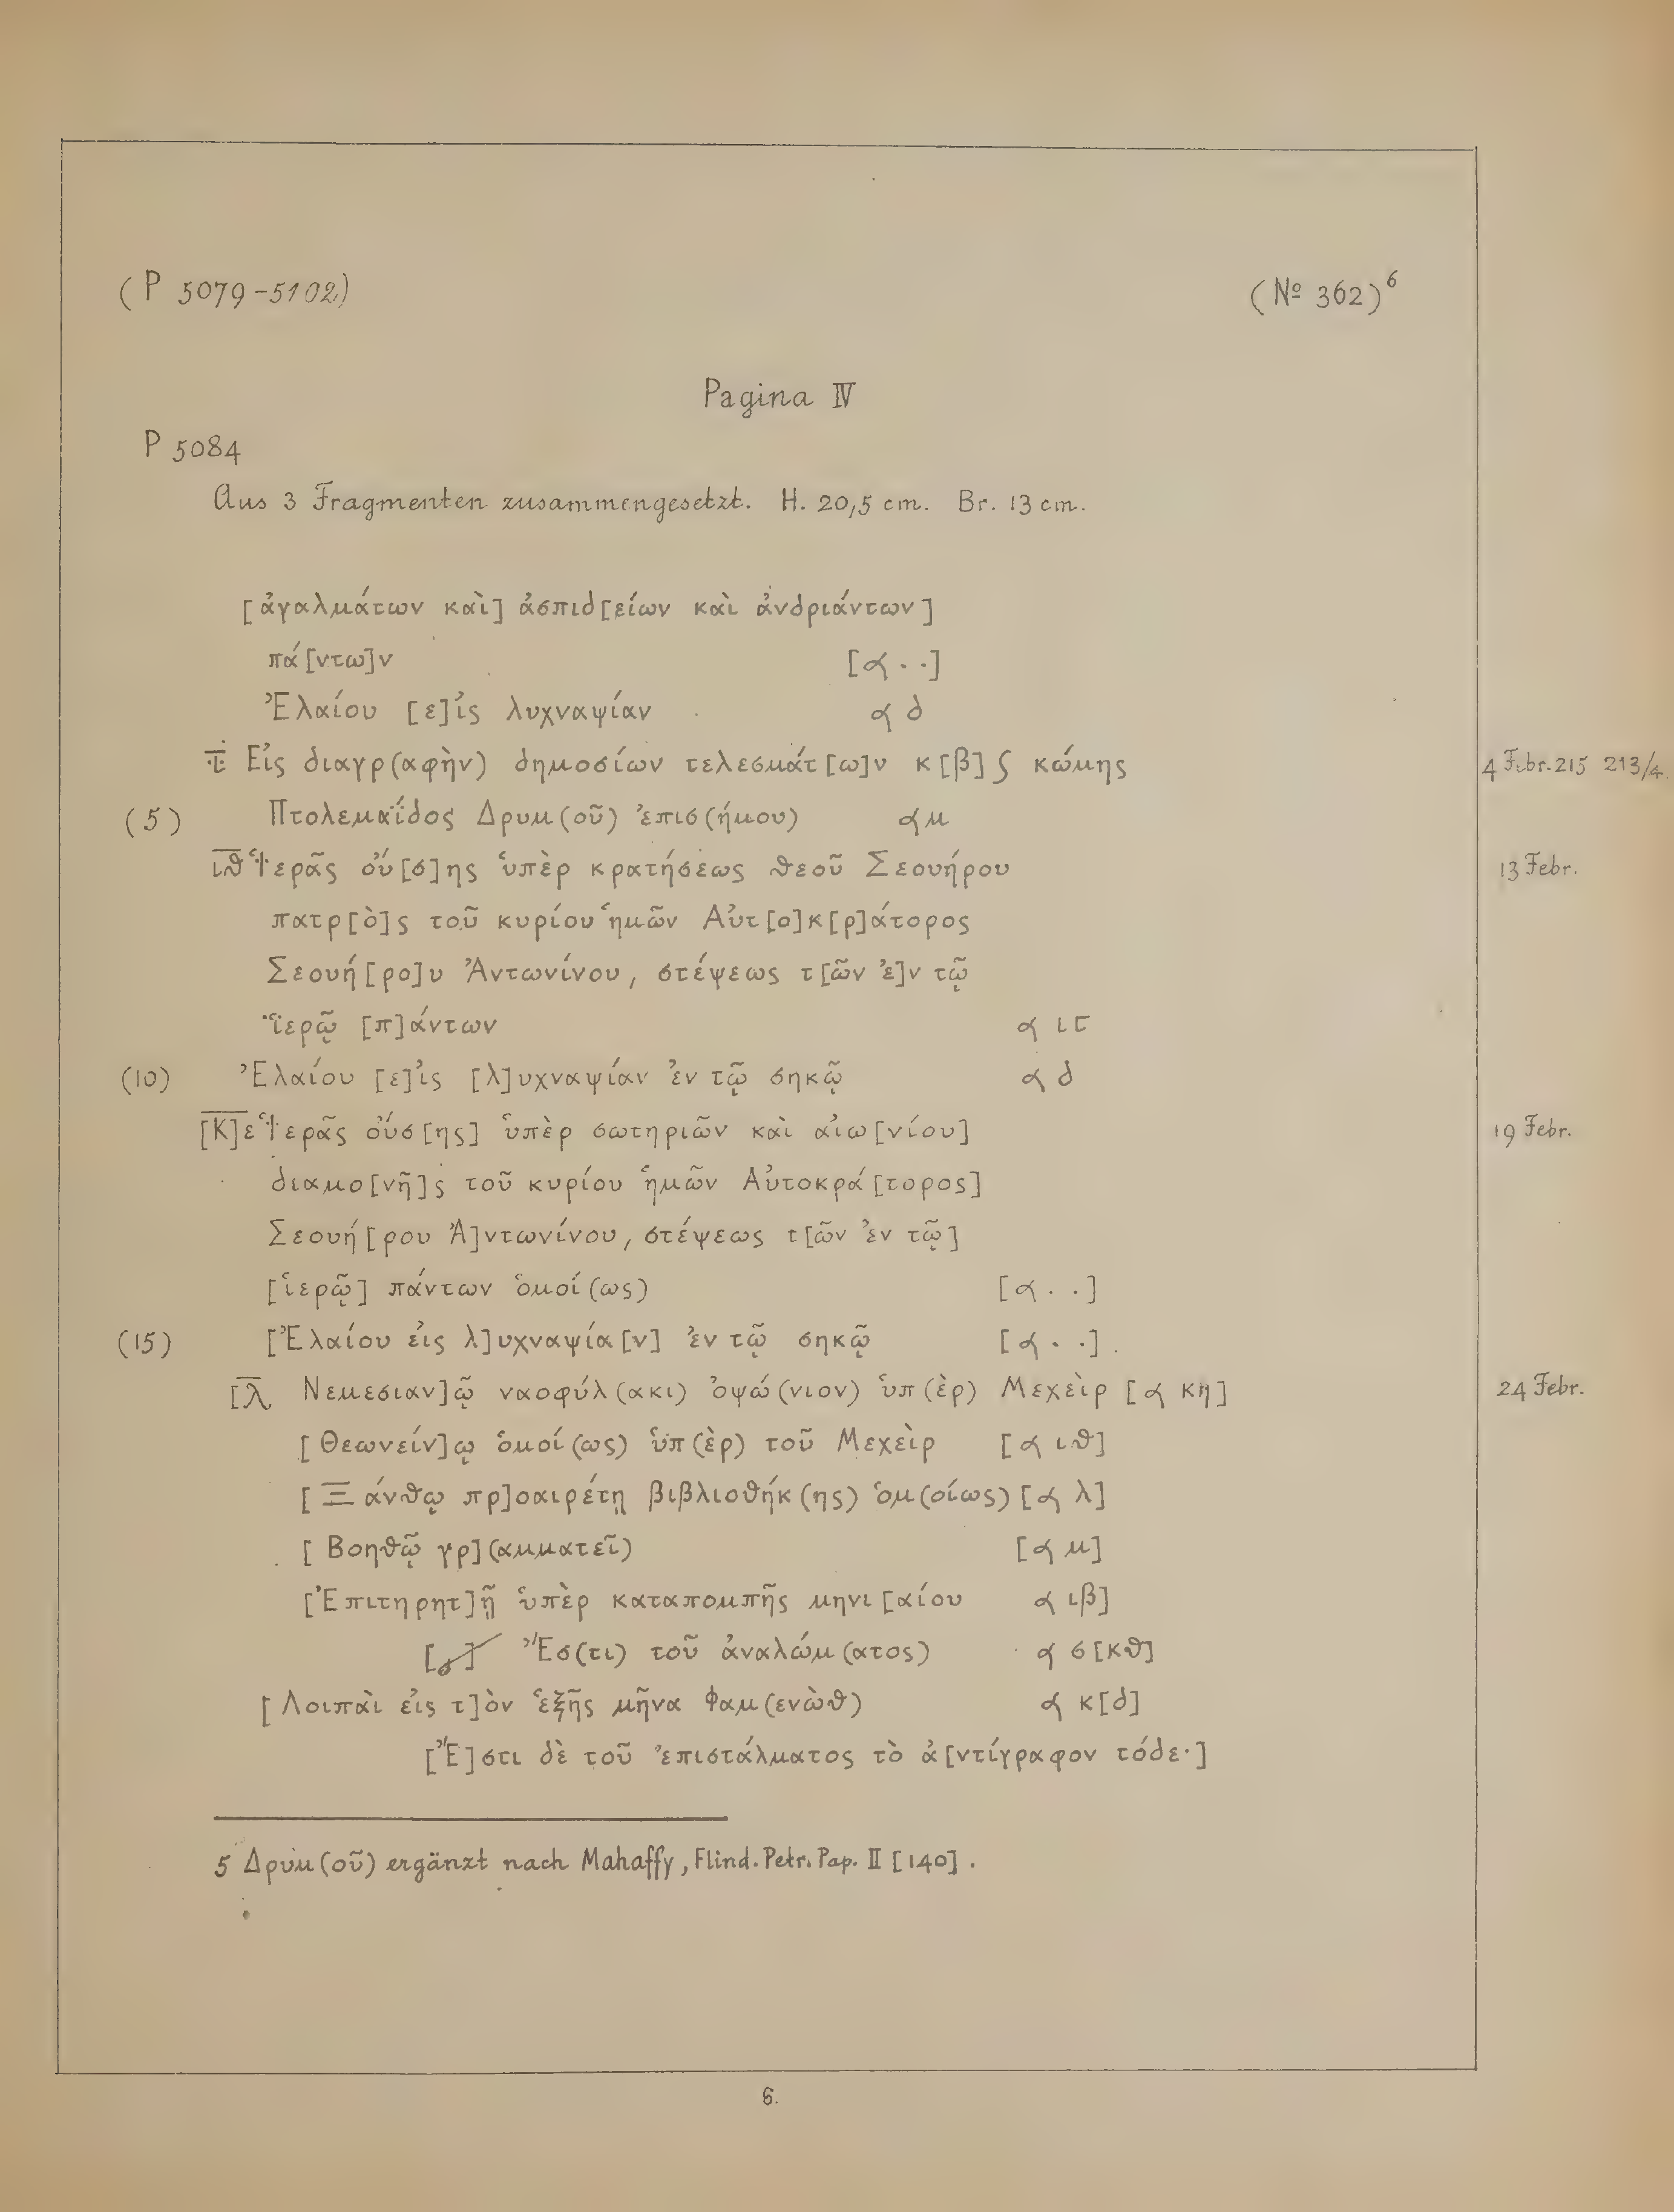 (P 5079-5102) (Nº 362)⁶
Pagina IV
P 5084
Aus 3 Fragmenten zusammengesetzt. H. 20,5 cm. Br. 13 cm.
[ἀγαλμάτων καὶ] ἀσπιδ[είων καὶ ἀνδριάντων]
πά[ντω]ν [𐅻 . .]
Ἐλαίου [ε]ἰς λυχναψίαν 𐅻 δ
ῑ Εἰς διαγρ(αφὴν) δημοσίων τελεσμάτ[ω]ν κ[β] ʃ κώμης 4 Febr. 215 213/4
(5) Πτολεμαΐδος Δρυμ(οῦ) ἐπισ(ήμου) 𐅻 μ
ι̅θ̅ Ἱερᾶς οὔ[σ]ης ὑπὲρ κρατήσεως θεοῦ Σεουήρου 13 Febr.
πατρ[ὸ]ς τοῦ κυρίου ἡμῶν Αὐτ[ο]κ[ρ]άτορος
Σεουή[ρο]υ Ἀντωνίνου, στέψεως τ[ῶν ἐ]ν τῷ
ἱερῷ [π]άντων 𐅻 ις
(10) Ἐλαίου [ε]ἰς [λ]υχναψίαν ἐν τῷ σηκῷ 𐅻 δ
[Κ]ε Ἱερᾶς οὔσ[ης] ὑπὲρ σωτηριῶν καὶ αἰω[νίου] 19 Febr.
διαμο[νῆ]ς τοῦ κυρίου ἡμῶν Αὐτοκρά[τορος]
Σεουή[ρου Ἀ]ντωνίνου, στέψεως τ[ῶν ἐν τῷ]
[ἱερῷ] πάντων ὁμοί(ως) [𐅻 . .]
(15) [Ἐλαίου εἰς λ]υχναψία[ν] ἐν τῷ σηκῷ [𐅻 . .].
[λ̅ Νεμεσιαν]ῷ ναοφύλ(ακι) ὀψώ(νιον) ὑπ(ὲρ) Μεχεὶρ [𐅻 κη] 24 Febr.
[Θεωνείν]ῳ ὁμοί(ως) ὑπ(ὲρ) τοῦ Μεχεὶρ [𐅻 ιθ]
[Ξάνθῳ πρ]οαιρέτῃ βιβλιοθήκ(ης) ὁμ(οίως) [𐅻 λ]
[Βοηθῷ γρ](αμματεῖ) [𐅻 μ]
[Ἐπιτηρητ]ῇ ὑπὲρ καταπομπῆς μηνι[αίου 𐅻 ιβ]
Ἔσ(τι) τοῦ ἀναλώμ(ατος) 𐅻 σ[κθ]
[Λοιπαὶ εἰς τ]ὸν ἑξῆς μῆνα Φαμ(ενὼθ) 𐅻 κ[δ]
[Ἔ]στι δὲ τοῦ ἐπιστάλματος τὸ ἀ[ντίγραφον τόδε·]
5 Δρυμ(οῦ) ergänzt nach Mahaffy, Flind. Petr. Pap. II [140].
6.